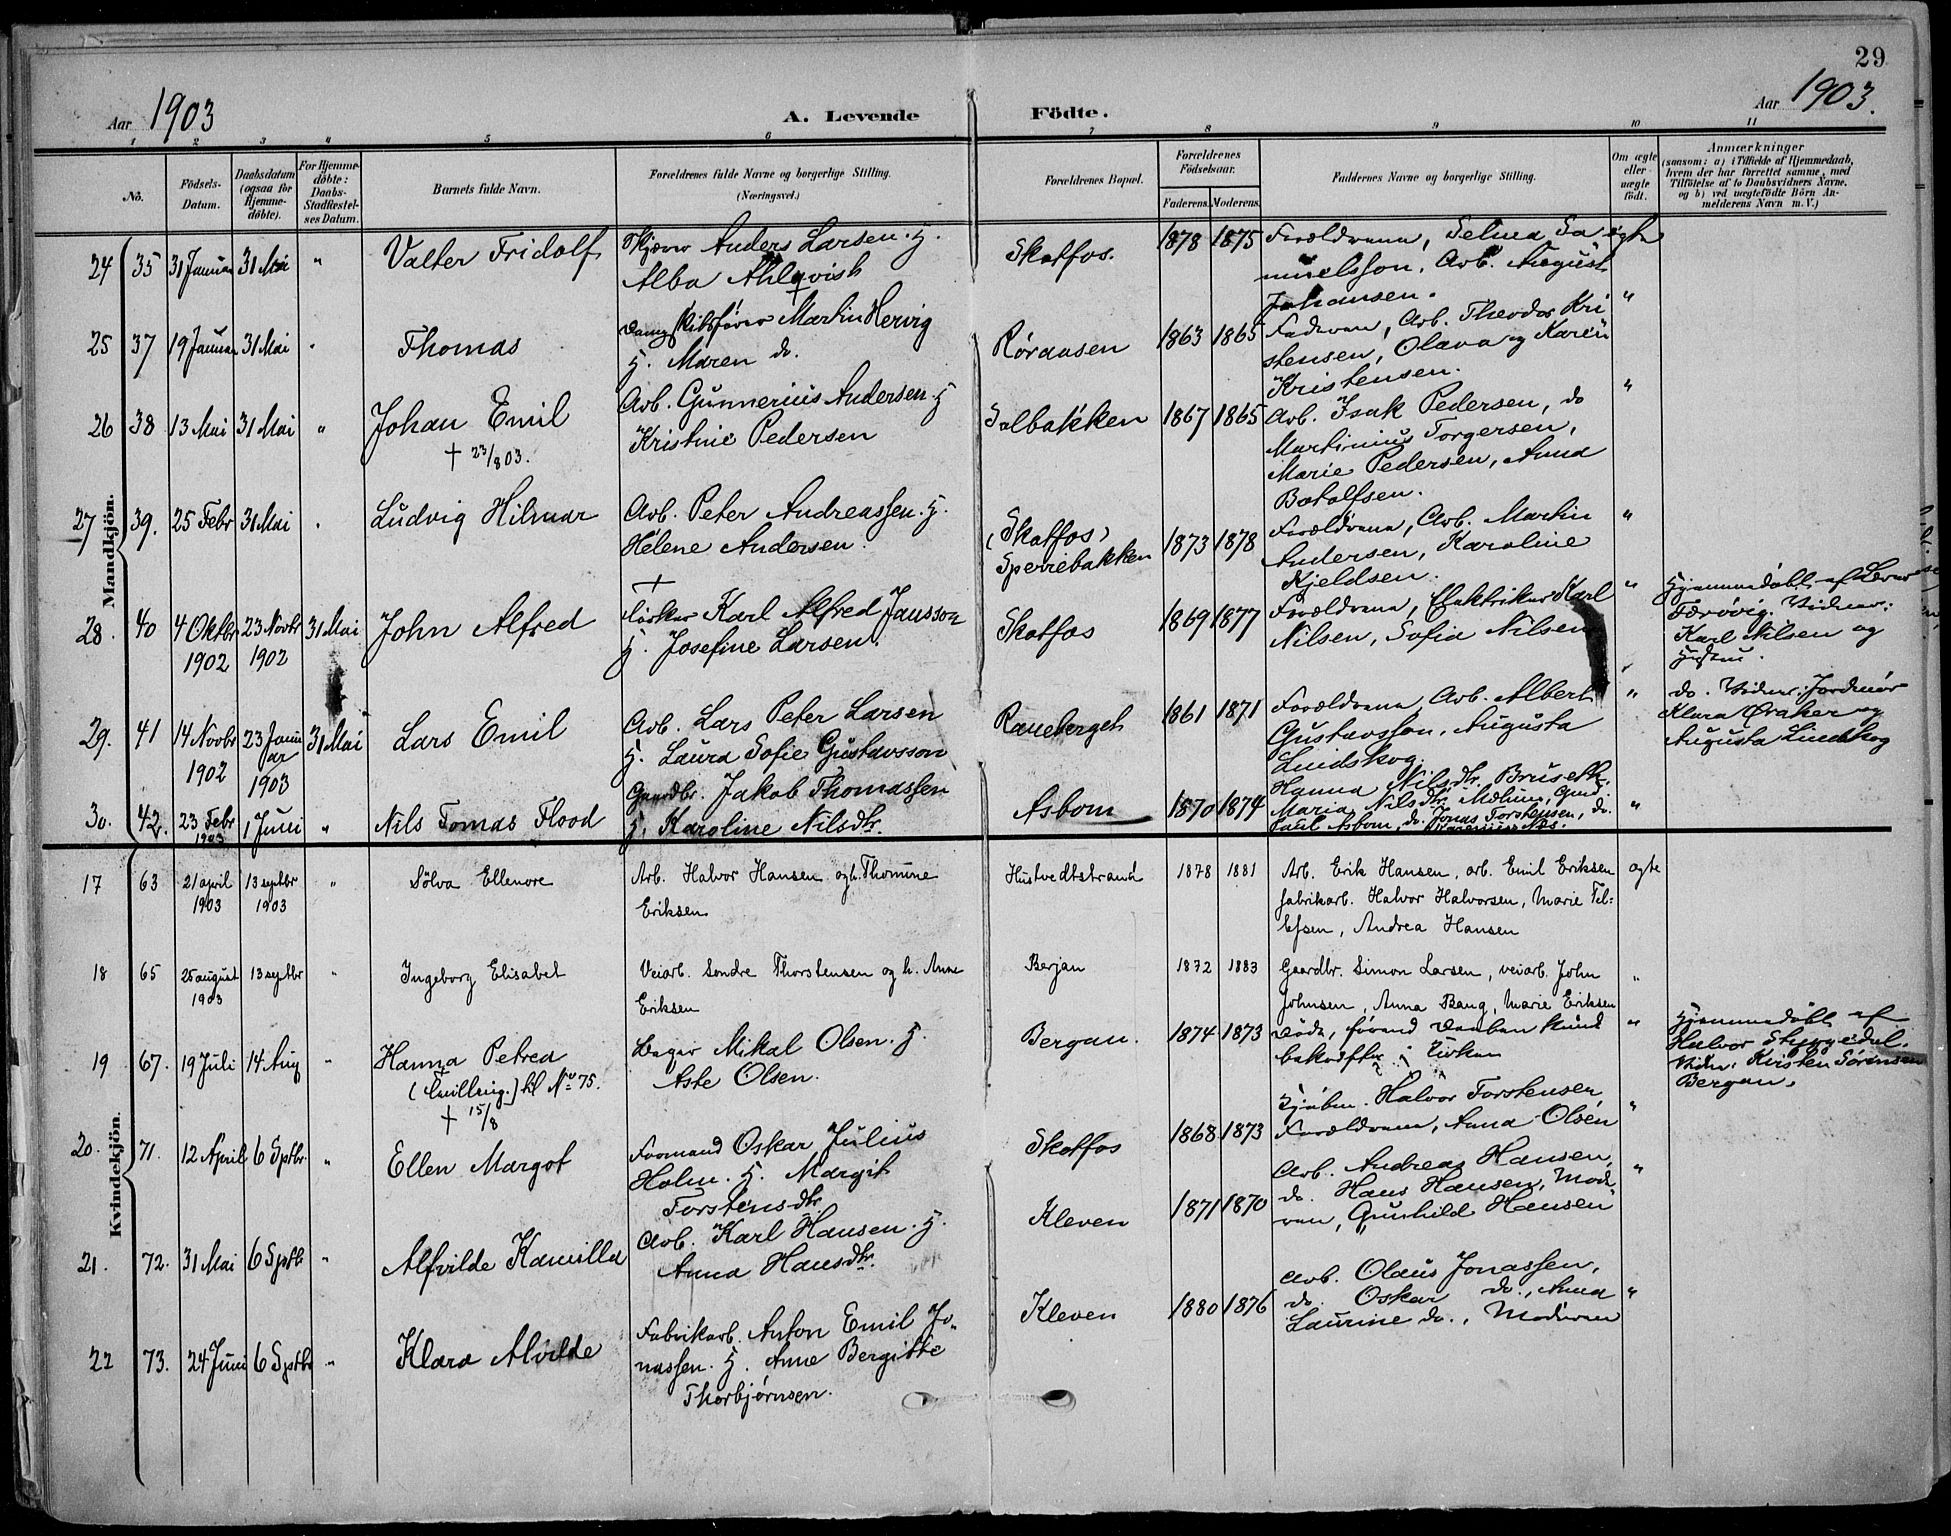 29
Aar 1903
A. Levende Födte.
Aar 1903.
1 2 3 4 5 6 7 8 9 10 11
No.
Födsels-Datum.
Daabsdatum (ogsaa for Hjemme-döbte).
For Hjemme-döbte: Daabs-Stadfestel-ses Datum.
Barnets fulde Navn.
Forældrenes fulde Navne og borgerlige Stilling.
(Næringsvei.)
Forældrenes Bopæl.
Forældrenes Födselsaar.
Faderens. Moderens.
Faddernes Navne og borgerlige Stilling.
Om ægte eller uægte födt.
Anmærkninger
(saasom: a) i Tilfælde af Hjemmedaab, hvem der har forrettet samme, med Tilföielse af to Daabsvidners Navne, og b) ved uægtefödte Börn An-melderens Navn m. V.)
Mandkjön.
24 35 31 Januar 31 Mai " Valter Fridolf
Anders Larsen. H.
Alba Ahlqvish
Skotfos. 1878 1875
Forældrene, Selma Sa
muelsson, Arb. August
Johansen.
ægte
25 37 19 Januar 31 Mai " Thomas
Damp skibsfører Martin Hervig
H. Maren do.
Røraasen 1863 1865
Faderen, Arb. Theodor Kri
stensen, Olava og Karen
Kristensen.
"
26 38 13 Mai 31 Mai " Johan Emil
† 23/8 03.
Arb. Gunnerius Andersen. H
Kristine Pedersen
Solbakken 1867 1865
Arb. Isak Pedersen, do
Martinius Torgersen,
Marie Pedersen, Anna
Botolfsen.
"
27 39. 25 Febr 31 Mai " Ludvig Hilmar
Arb. Peter Andreassen. H.
Helene Andersen.
(Skotfos)
Sperrebakken 1873 1878
Forældrene, Arb. Martin
Andersen, Karoline
Kjeldsen.
"
28. 40 4 Oktbr 1902 23 Novbr 1902 31 Mai John Alfred
Karl Alfred Jansson
H. Josefine Larsen.
Skotfos 1869 1877
Forældrene, Elektriker Karl
Nilsen, Sofia Nilsen
"
Hjemmedøbt af
Færøvig. Vidner:
Karl Nilsen og
Hustru.
29. 41 14 Novbr 1902 23 Januar 1903 31 Mai Lars Emil
Arb. Lars Peter Larsen
H. Laura Sofie Gustavsson
Raneberget 1861 1871
Forældrene, Arb. Albert
Gustavsson, Augusta
Lindskog.
"
do. Vidner: Jordmor
Klara Øraker og
Augusta Lindskog
30. 42. 23 Febr 1903 1 Juni " Nils Tomas Flood
Gaardbr. Jakob Thomassen
H. Karoline Nilsdtr.
Asbom 1870 1874
Hanna Nilsdtr. Bruseth,
Maria Nilsdtr. Mælum, Gmd.
Paul Asbom, do. Jonas Torstensen, do.
"
Kvindekjön.
17 63 21 april 1903 13 septbr 1903 " Sölva Ellenore
Arb. Halvor Hansen og h. Thomine
Eriksen
Hustvedtstrand 1878 1881
Arb. Erik Hansen, arb. Emil Eriksen
fabrikarb. Halvor Halvorsen, Marie Tel-
lefsen, Andrea Hansen
ægte
18 65 25 august 1903 13 septbr " Ingeborg Elisabet
Veiarb. Sondre Thorstensen og h. Anne
Eriksen
Berjan 1872 1883
Gaardbr. Simon Larsen, veiarb. John
Johnsen, Anna Bang, Marie Eriksen
"
19 67. 19 Juli 14 Aug " Hanna Petrea
(tvilling.) til No 75.
† 15/8
Bager Mikal Olsen. H.
Aste Olsen.
Bergan. 1874 1873
Døde, førend Daaben kund
bekræftes i Kirken
"
Hjemmedøbt af
Halvor Styggedal.
Vidn. Kirsten Sørensen
Bergan.
20. 71. 12 April 6 Sptbr. " Ellen Margot
Formand Oskar Julius
Holm. H. Margit
Torstensdtr.
Skotfos 1868 1873
Halvor Torstensen,
Forældrene, Anna Olsen
"
21. 72. 31 Mai 6 Sptb " Alfvilde Kamilla
Arb. Karl Hansen. H.
Anna Hansdtr.
Kleven 1871 1870
Arb. Andreas Hansen,
do. Hans Hansen, Mode
ren, Gunhild Hansen
"
22 73. 24 Juni 6 Sptbr " Klara Alvilde
Fabrikarb. Anton Emil Jo-
nassen. H. Anne Bergitte
Thorbjørnsen.
Kleven 1880 1876
Arb. Olaus Jonassen,
do. Oskar do., Anna
Laurine do., Moderen
"